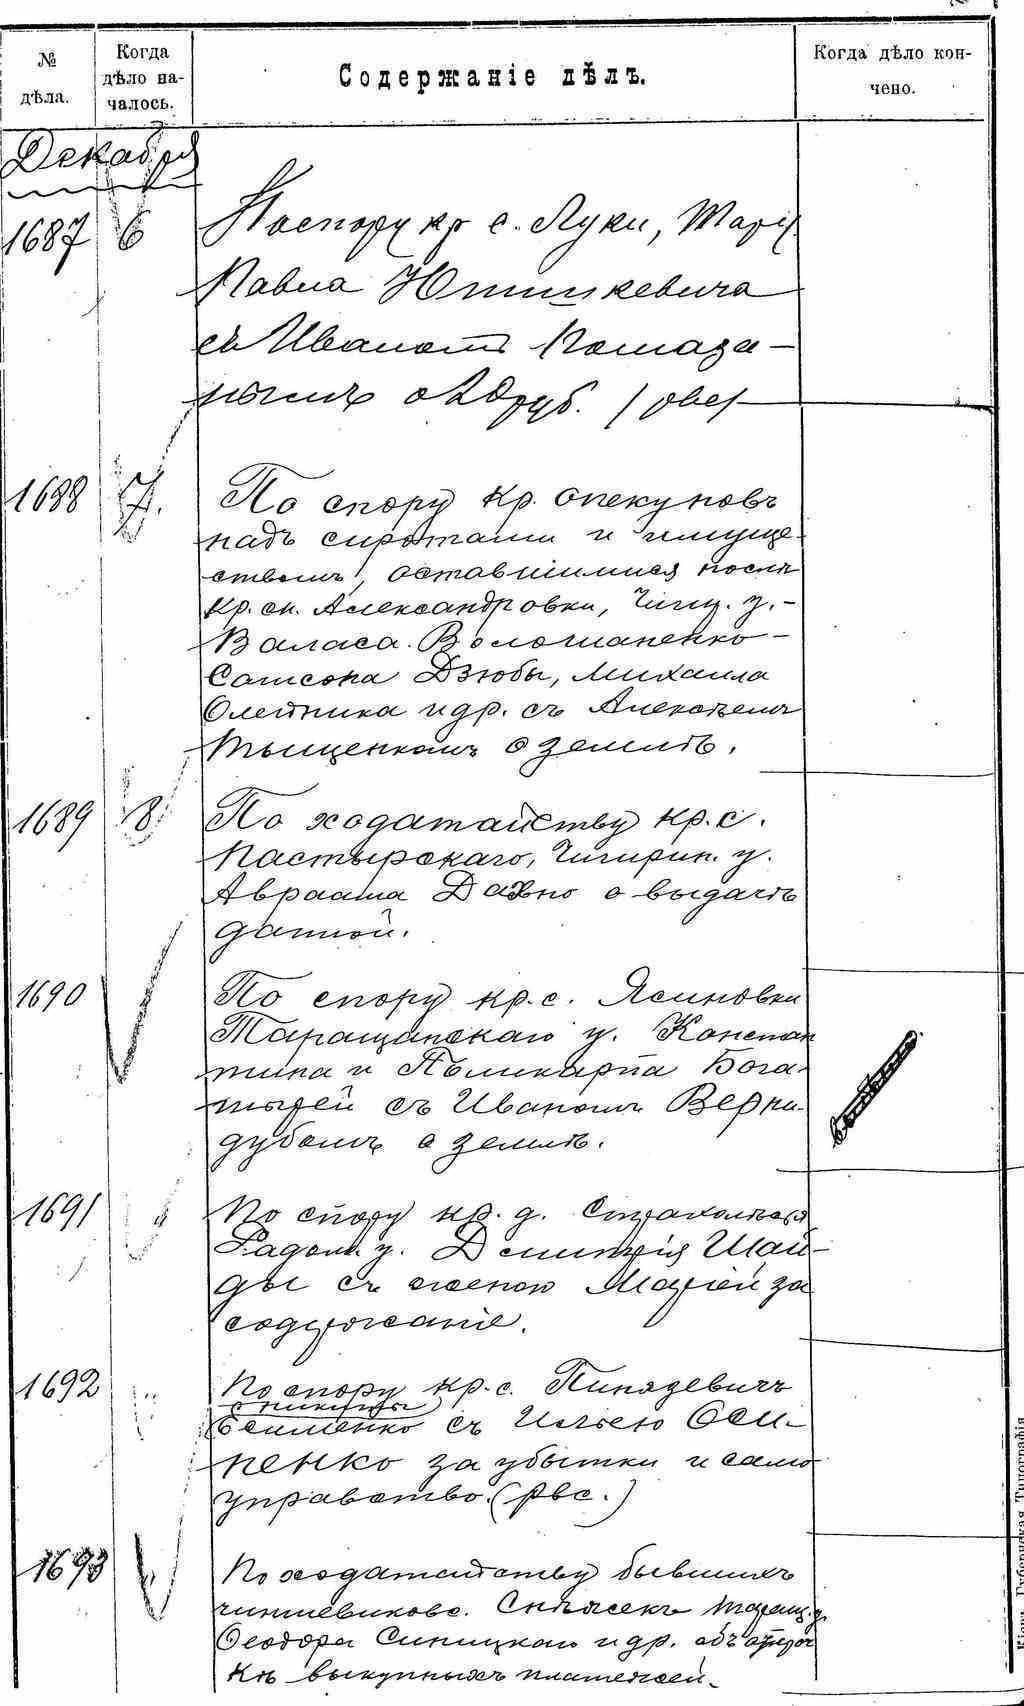 № дѣла.
Когда дѣло началось.
Содержаніе дѣлъ.
Когда дѣло кончено.
Декабря
1687 6 По спору кр с. Луки, Тарщ
Павла Юшкевича
съ Иваномъ Помаза-
нымъ о 20 руб.
1688 7. По спору кр. опекуновъ
надъ сиротами и имуще-
ствомъ, оставшимися послѣ
кр. сл. Александровки, Чиги. у. -
Валаса Воломаненко -
Самсона Дзюбы, Михаила
Олейника и др. съ Алексѣемъ
Тыщенкомъ о землѣ.
1689 8 По ходатайству кр. с.
Пастырскаго, Чигирин. у.
Авраама Дахно о выдачѣ
данной.
1690 По спору кр. с. Ясиновки
Таращанскаго у. Констан
тина и Поликарпа Бога-
тырей съ Иваномъ Верни-
дубомъ о землѣ.
1691 По спору кр. д.
Радом. у. Дмитрія Шай-
ды съ женою Маріей за
содержаніе.
1692 По спору кр. с. Пинязевичъ
Никиты
Есименко съ Ильею Оси-
пенко за убытки и само
управство. (рвс.)
1693 По ходатайству бывшихъ
чиншевиковъ с. Снѣжекъ Таращ. у.
Ѳеодора Синицкаго и др. объ отсроч
кѣ выкупныхъ платежей.
Кіев. Губернская Типографія